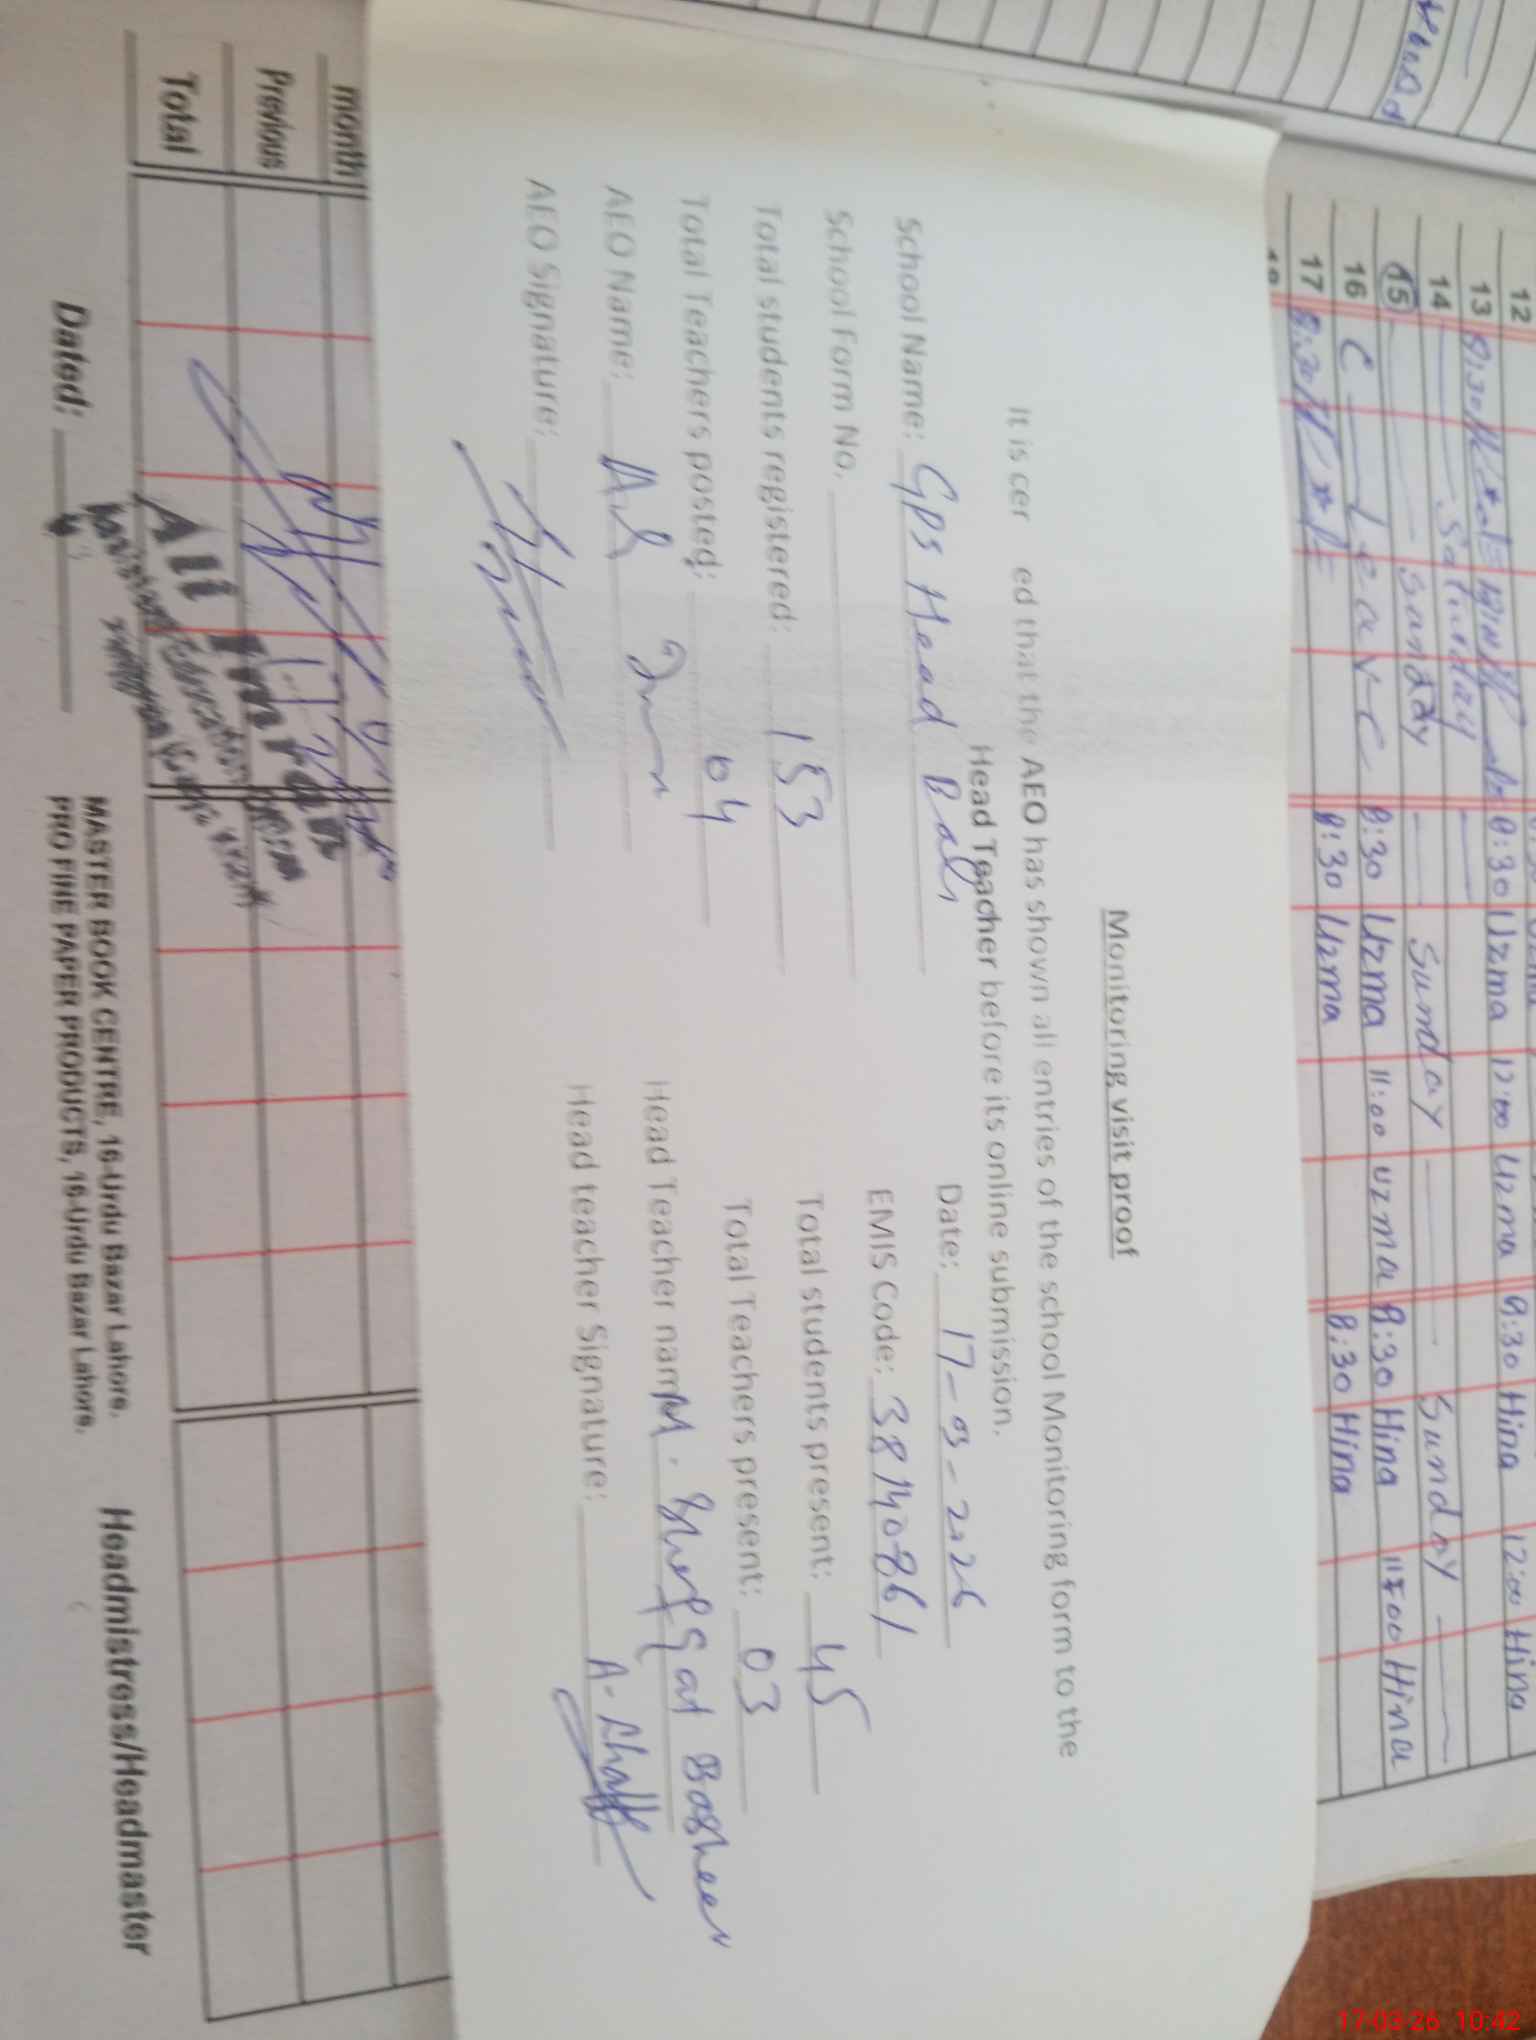 12
13 8:30 8:30 Uzma 12:00 Uzma 8:30 Hina 12:00 Hina
14 Saturday
15 Sunday Sunday Sunday
16 C Leave 8:30 Uzma 11:00 Uzma 8:30 Hina 11:00 Hina
17 8:30 8:30 Uzma 8:30 Hina
Monitoring visit proof
It is cer ed that the AEO has shown all entries of the school Monitoring form to the
Head Teacher before its online submission.
School Name: Gps Head Date: 17-03-2026
School Form No. EMIS Code: 38140861
Total students registered: 153 Total students present: 45
Total Teachers posted: 04 Total Teachers present: 03
AEO Name: Head Teacher nam M.
AEO Signature: Head teacher Signature:
month
Previous
Total
Ali Imran
Assistant Education
Dated:
MASTER BOOK CENTRE, 16-Urdu Bazar Lahore.
PRO FINE PAPER PRODUCTS, 16-Urdu Bazar Lahore.
Headmistress/Headmaster
17-03-26 10:42